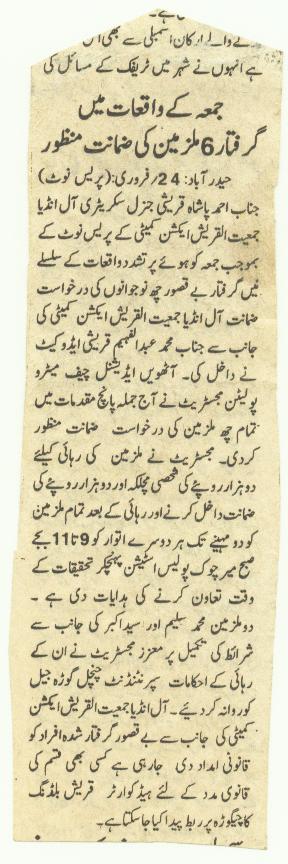 ہے۔
والے ارکان اسمبلی سے بھی اس
ہے انہوں نے شہر میں ٹریفک کے مسائل کی
جمعہ کے واقعات میں
گرفتار 6 ملزمین کی ضمانت منظور
حیدرآباد: 24/فروری: (پریس نوٹ)
جناب احمد پاشاہ قریشی جنرل سکریٹری آل انڈیا
جمعیت القریش ایکشن کمیٹی کے پریس نوٹ کے
بموجب جمعہ کو ہوئے پرتشدد واقعات کے سلسلے
میں گرفتار بے قصور چھ نوجوانوں کی درخواست
ضمانت آل انڈیا جمعیت القریش ایکشن کمیٹی کی
جانب سے جناب محمد عبدالفہیم قریشی ایڈوکیٹ
نے داخل کی۔ آٹھویں ایڈیشنل چیف میٹرو
پولیٹن مجسٹریٹ نے آج جملہ پانچ مقدمات میں
تمام چھ ملزمین کی درخواست ضمانت منظور
کردی۔ مجسٹریٹ نے ملزمین کی رہائی کیلئے
دو ہزار روپئے کی شخصی مچلکہ اور دو ہزار روپئے کی
ضمانت داخل کرنے اور رہائی کے بعد تمام ملزمین
کو دو مہینے تک ہر دوسرے اتوار کو 9 تا 11 بجے
صبح میر چوک پولیس اسٹیشن پہنچکر تحقیقات کے
وقت تعاون کرنے کی ہدایات دی ہے۔
دو ملزمین محمد سلیم اور سید اکبر کی جانب سے
شرائط کی تکمیل پر معزز مجسٹریٹ نے ان کے
رہائی کے احکامات سپرنٹنڈنٹ چنچل گوڑہ جیل
کو روانہ کردیئے۔ آل انڈیا جمعیت القریش ایکشن
کمیٹی کی جانب سے بے قصور گرفتار شدہ افراد کو
قانونی امداد دی جارہی ہے کسی بھی قسم کی
قانوی مدد کے لئے ہیڈکوارٹر قریش بلڈنگ
کاچیگوڑہ پر ربط پیدا کیا جاسکتا ہے۔